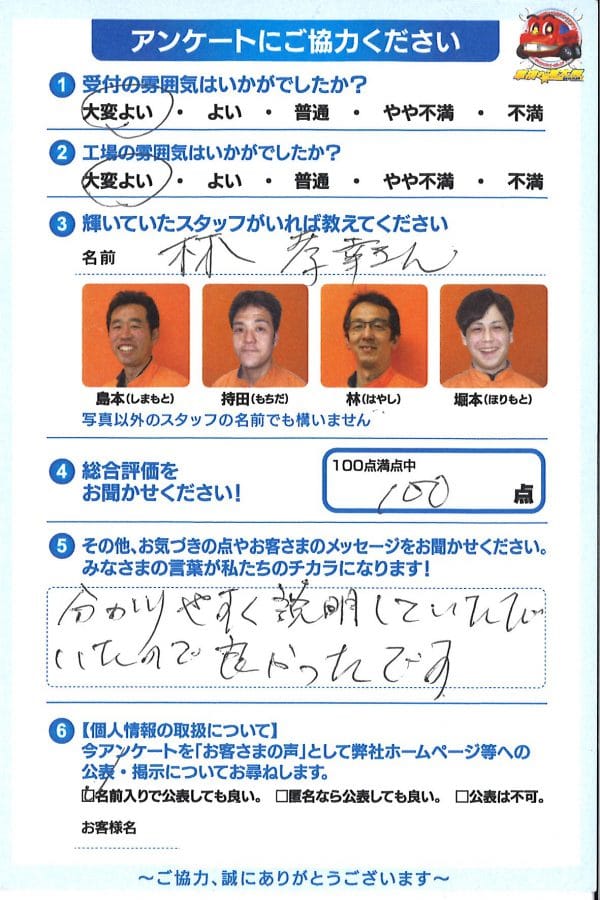 アンケートにご協力ください
1 受付の雰囲気はいかがでしたか?
大変よい ・ よい ・ 普通 ・ やや不満 ・ 不満
2 工場の雰囲気はいかがでしたか?
大変よい ・ よい ・ 普通 ・ やや不満 ・ 不満
3 輝いていたスタッフがいれば教えてください
名前 林 孝幸さん
島本(しまもと) 持田(もちだ) 林(はやし) 堀本(ほりもと)
写真以外のスタッフの名前でも構いません
4 総合評価を
お聞かせください!
100点満点中
100 点
5 その他、お気づきの点やお客さまのメッセージをお聞かせください。
みなさまの言葉が私たちのチカラになります!
分かりやすく説明していただ
いたので良かったです
6 【個人情報の取扱について】
今アンケートを「お客さまの声」として弊社ホームページ等への
公表・掲示についてお尋ねします。
□名前入りで公表しても良い。 □匿名なら公表しても良い。 □公表は不可。
お客様名
~ご協力、誠にありがとうございます~